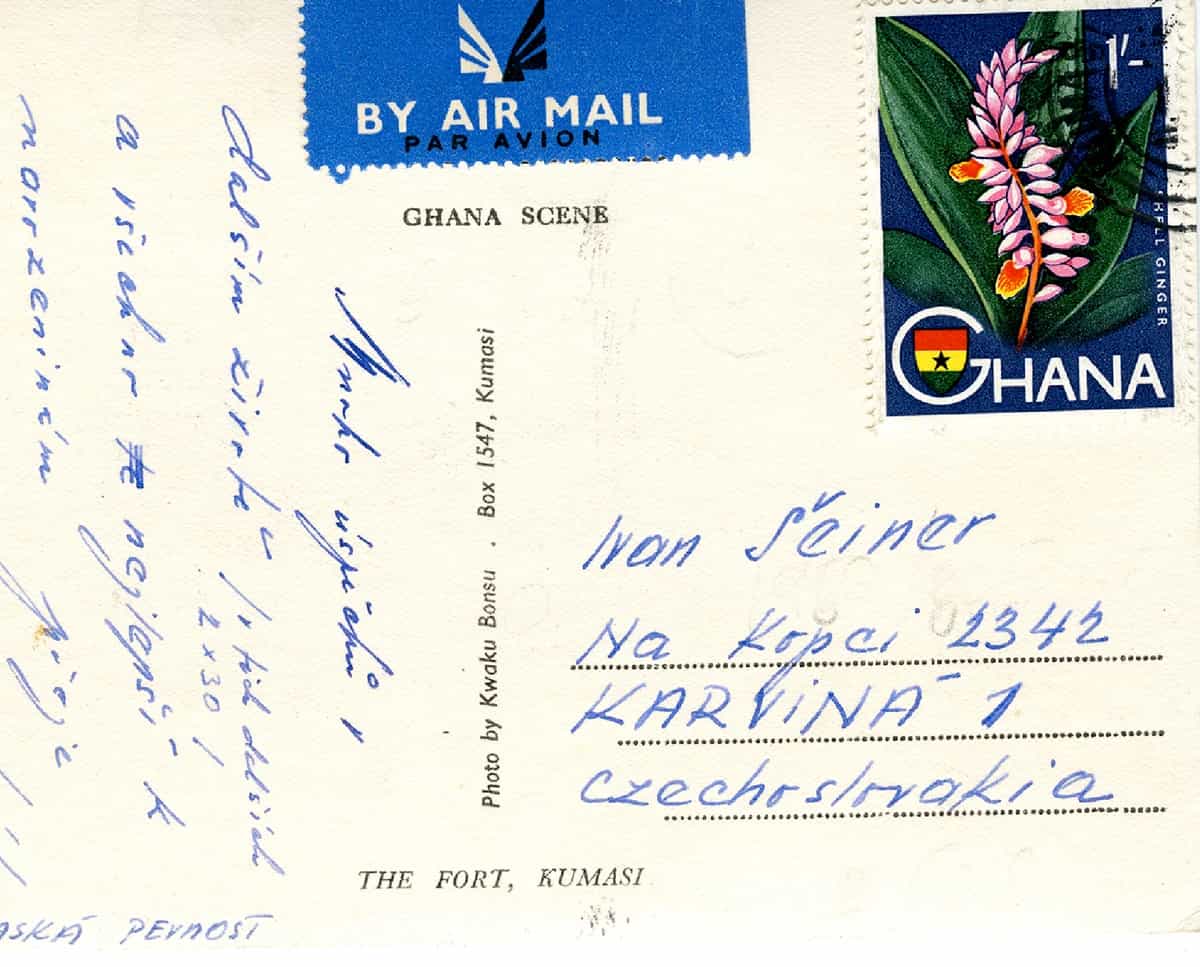 BY AIR MAIL
PAR AVION
GHANA SCENE
1'-
SHELL GINGER
GHANA
Mnoho úspěchů v
dalším životě
/v těch dalších
2 x 30/
a všechno nejlepší k
narozeninám přeje
Photo by Kwaku Bonsu . Box 1547, Kumasi
Ivan Šeiner
Na Kopci 2342
KARVINÁ 1
Czechoslovakia
THE FORT, KUMASI
PEVNOST